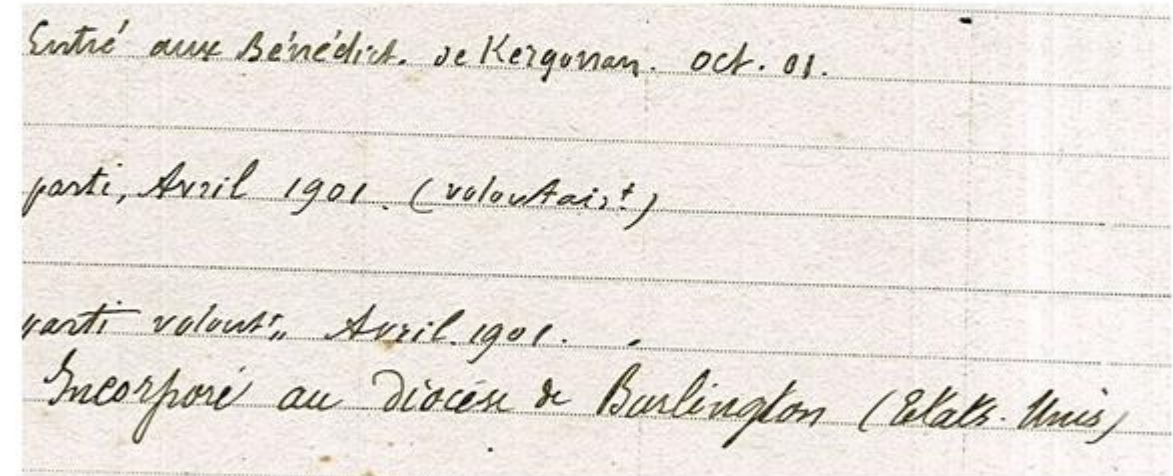 Entré aux Bénédict. de Kergonan. oct. 01.
parti, Avril 1901. (volontairt)
parti volontt,, Avril. 1901.
Incorporé au Diocèse de Burlington (Etats-Unis)